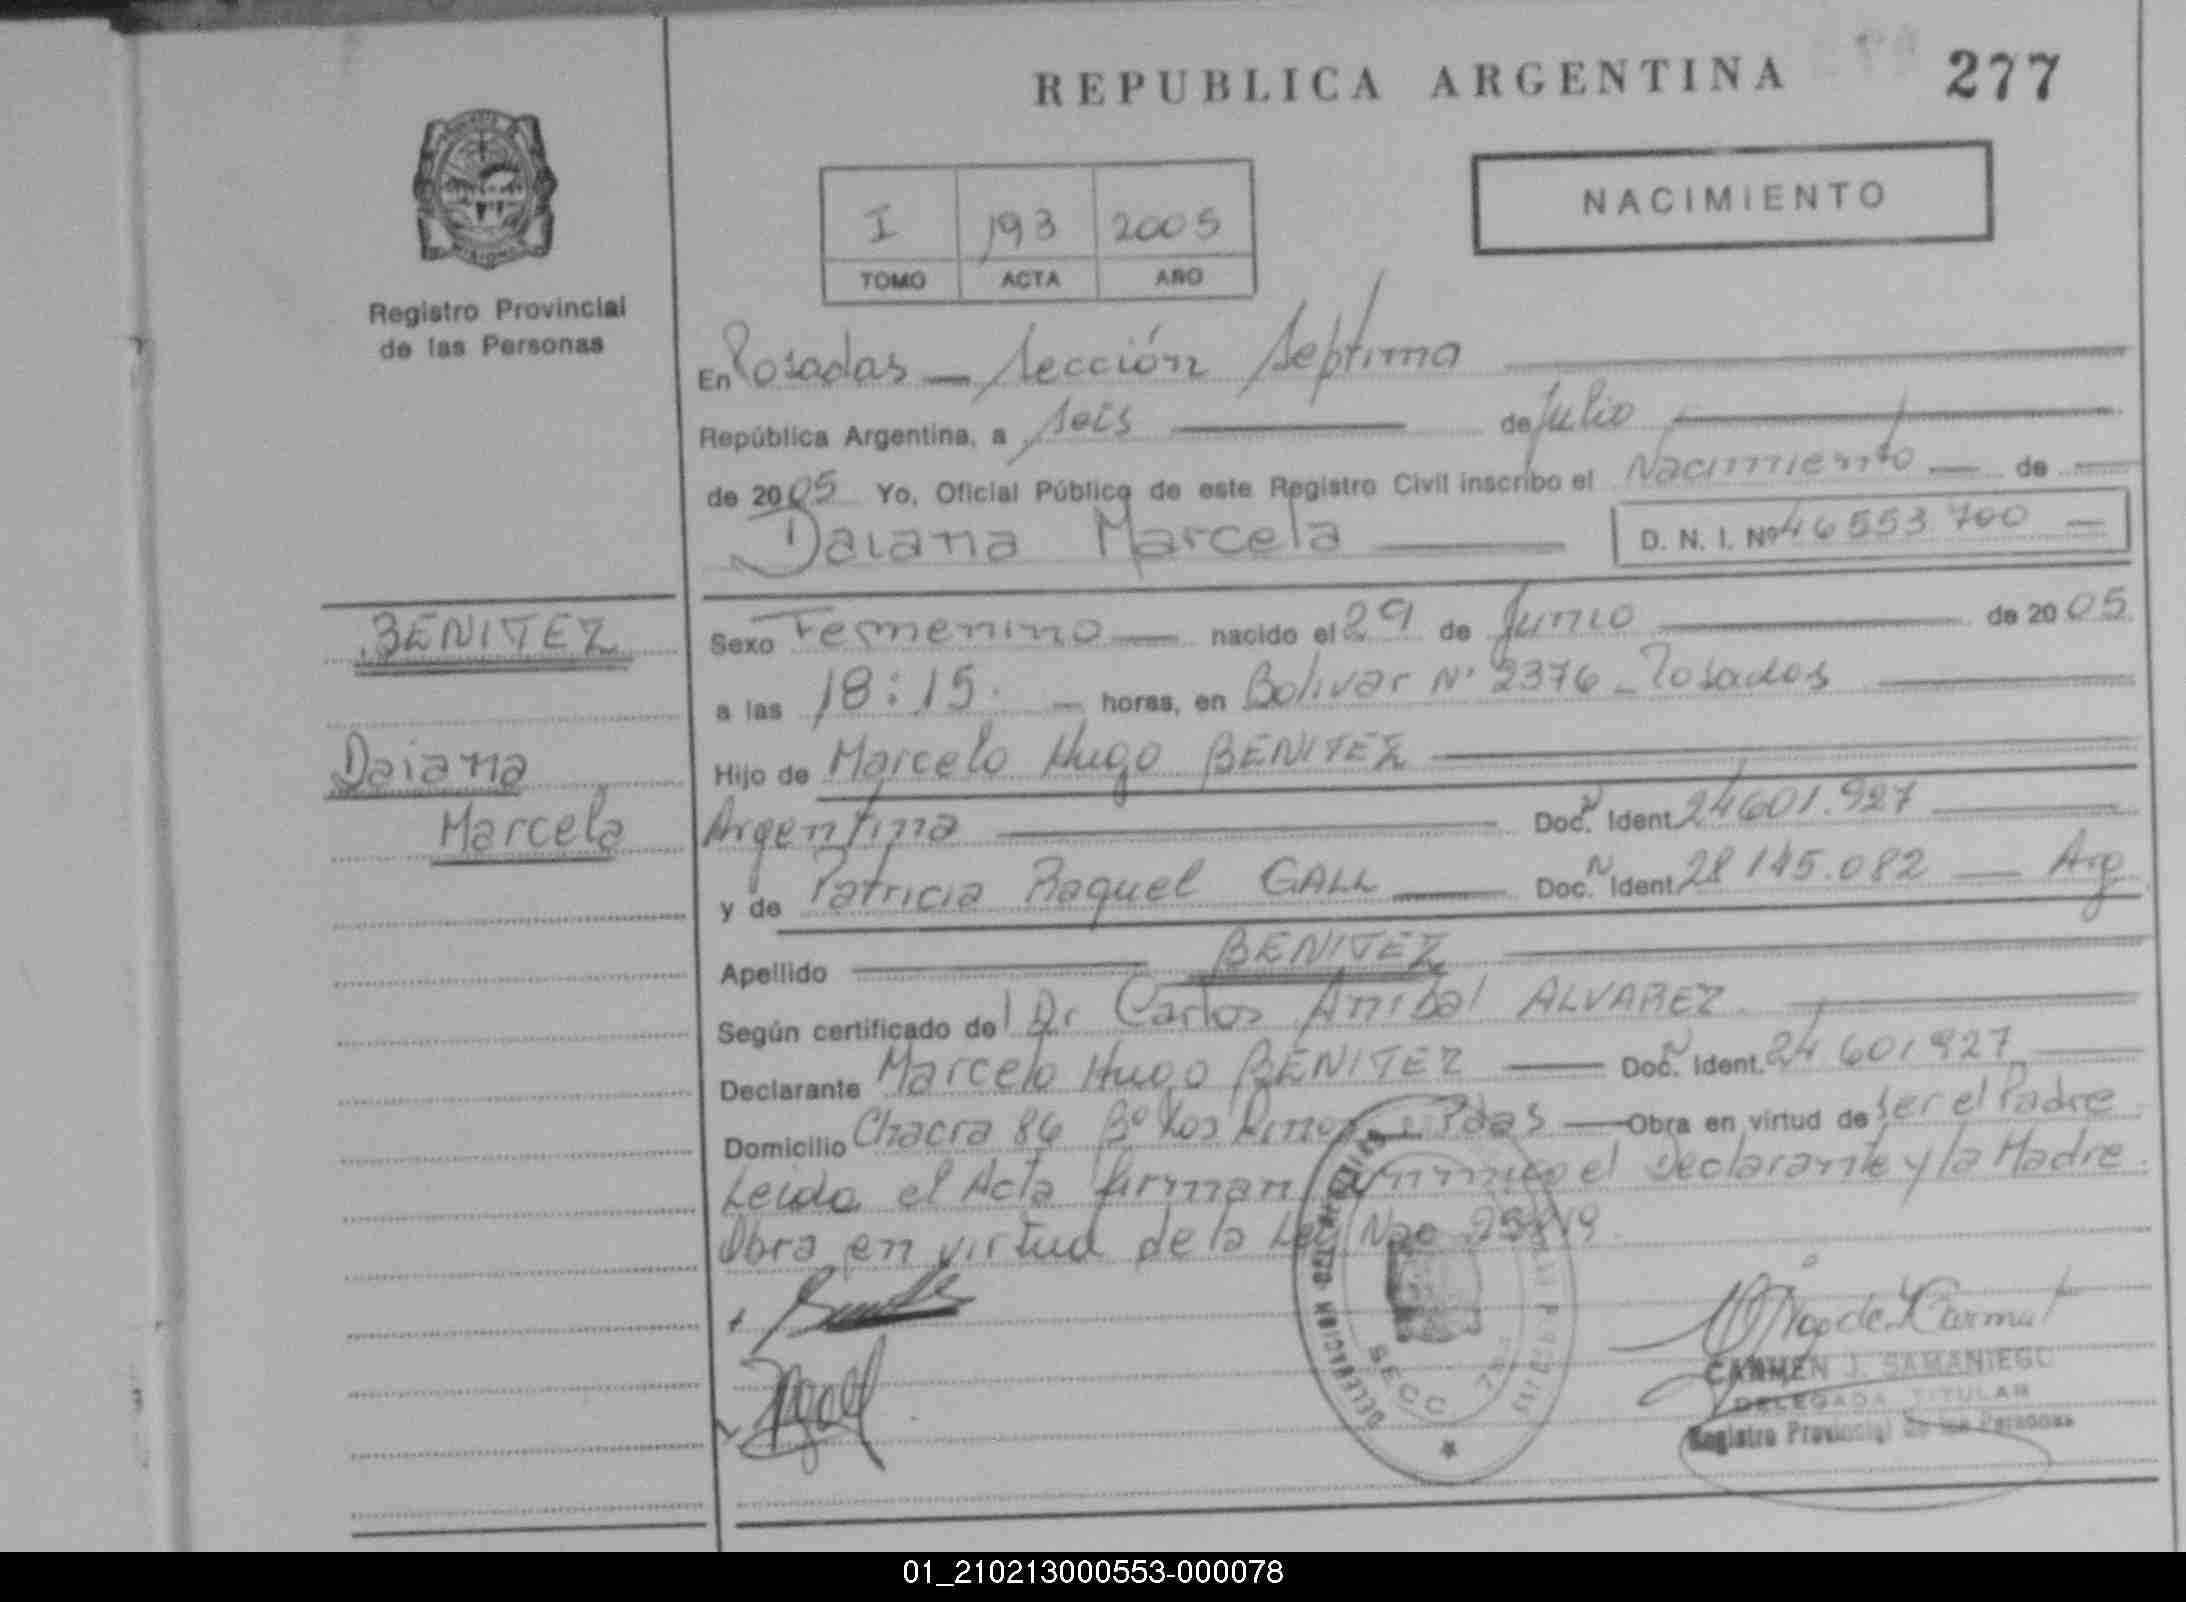 REPUBLICA ARGENTINA 277
NACIMIENTO
I 193 2005
TOMO ACTA AÑO
Registro Provincial
de las Personas
En Posadas — Sección Septima
República Argentina, a seis de Julio
de 2005 Yo, Oficial Público de este Registro Civil inscribo el Nacimiento — de
Daiana Marcela D. N. I. Nº 46553700
BENITEZ
Daiana
Marcela
Sexo Femenino — nacido el 29 de Junio de 2005
a las 18:15. — horas, en Bolivar Nº 2376 - Posadas
Hijo de Marcelo Hugo BENITEZ
Argentina Doc. N Ident. 24601.927
y de Patricia Raquel GALL Doc. N Ident. 28145.082 — Arg
Apellido BENITEZ
Según certificado del Dr Carlos Anibal ALVAREZ
Declarante Marcelo Hugo BENITEZ Doc. N Ident. 24601927
Domicilio Chacra 86 Bº Los Pdas — Obra en virtud de ser el Padre
Leida el Acta firman el Declarante y la Madre.
Obra en virtud de la Ley Nac
DELEGACION
SECC 7
CARMEN J. SAMANIEGO
DELEGADA TITULAR
Registro Provincial de las Personas
01_210213000553-000078